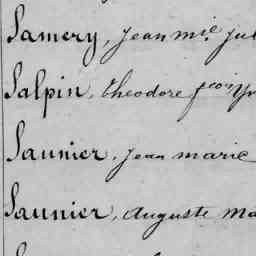 Samery, Jean mie Jul
Salpin, theodore fcois Yv
Saunier, Jean marie
Saunier, auguste ma